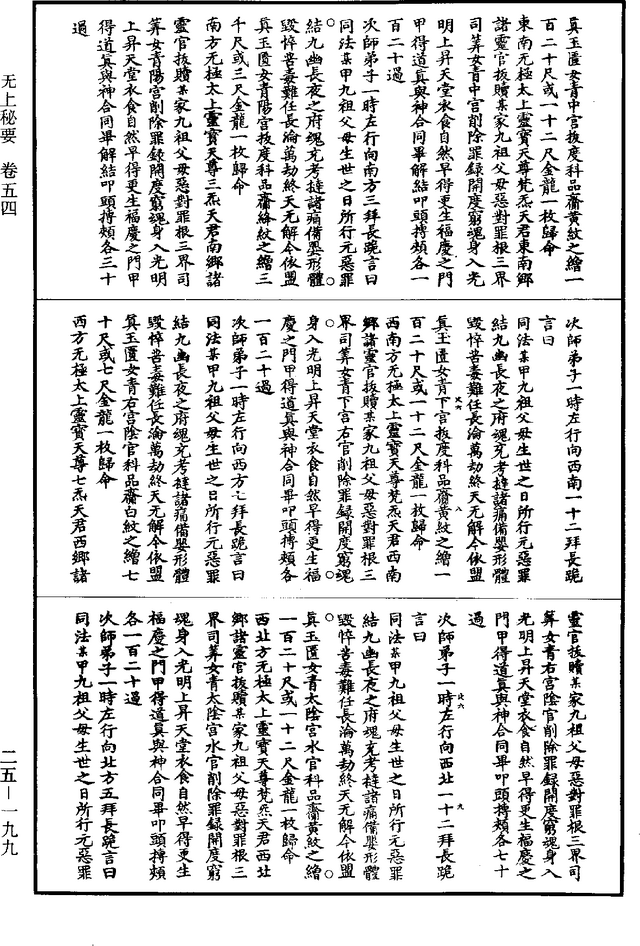 无上秘要 卷五四
二五—一九九
真玉匱女青中宮拔度科品齎黃紋之繒一
百二十尺或一十二尺金龍一枚歸命
東南无極太上靈寶天尊梵炁天君東南鄉
諸靈官拔贖某家九祖父母惡對罪根三界
司筭女青中宮削除罪錄開度窮魂身入光
明上昇天堂衣食自然早得更生福慶之門
甲得道真與神合同畢解結叩頭搏頰各一
百二十過
次師弟子一時左行向南方三拜長跪言曰
同法某甲九祖父母生世之日所行元惡罪
結九幽長夜之府魂充考撻諸痛備嬰形體
毀悴苦毒難任長淪萬劫終天无解今依盟
真玉匱女青陽宮拔度科品齎絳紋之繒三
千尺或三尺金龍一枚歸命
南方无極太上靈寶天尊三炁天君南鄉諸
靈官拔贖某家九祖父母惡對罪根三界司
筭女青陽宮削除罪錄開度窮魂身入光明
上昇天堂衣食自然早得更生福慶之門甲
得道真與神合同畢解結叩頭搏頰各三十
過
次師弟子一時左行向西南一十二拜長跪
言曰
同法某甲九祖父母生世之日所行元惡罪
結九幽長夜之府魂充考撻諸痛備嬰形體
毀悴苦毒難任長淪萬劫終天无解今依盟
真玉匱女青下宮拔度科品齎黃紋之繒一
百二十尺或一十二尺金龍一枚歸命
西南方无極太上靈寶天尊梵炁天君西南
鄉諸靈官拔贖某家九祖父母惡對罪根三
界司筭女青下宮右官削除罪錄開度窮魂
身入光明上昇天堂衣食自然早得更生福
慶之門甲得道真與神合同畢叩頭搏頰各
一百二十過
次師弟子一時左行向西方七拜長跪言曰
同法某甲九祖父母生世之日所行元惡罪
結九幽長夜之府魂充考撻諸痛備嬰形體
毀悴苦毒難任長淪萬劫終天无解今依盟
真玉匱女青右宮陰官科品齎白紋之繒七
十尺或七尺金龍一枚歸命
西方无極太上靈寶天尊七炁天君西鄉諸
靈官拔贖某家九祖父母惡對罪根三界司
筭女青右宮陰官削除罪錄開度窮魂身入
光明上昇天堂衣食自然早得更生福慶之
門甲得道真與神合同畢叩頭搏頰各七十
過
次師弟子一時左行向西北一十二拜長跪
言曰
同法某甲九祖父母生世之日所行元惡罪
結九幽長夜之府魂充考撻諸痛備嬰形體
毀悴苦毒難任長淪萬劫終天无解今依盟
真玉匱女青太陰宮水官科品齎黃紋之繒
一百二十尺或一十二尺金龍一枚歸命
西北方无極太上靈寶天尊梵炁天君西北
鄉諸靈官拔贖某家九祖父母惡對罪根三
界司筭女青太陰宮水官削除罪錄開度窮
魂身入光明上昇天堂衣食自然早得更生
福慶之門甲得道真與神合同畢叩頭搏頰
各一百二十過
次師弟子一時左行向北方五拜長跪言曰
同法某甲九祖父母生世之日所行元惡罪